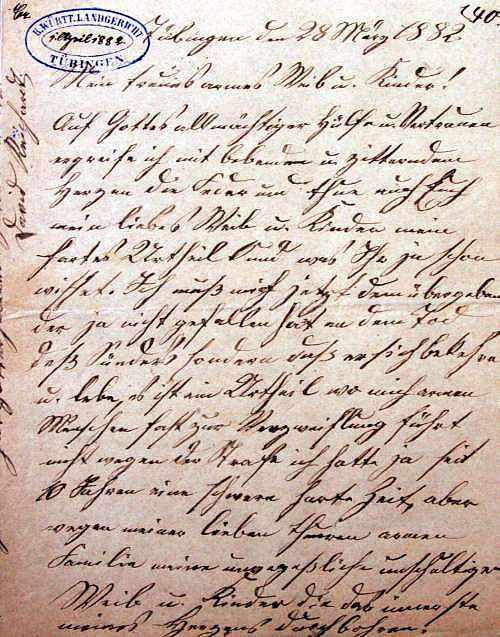 K. WÜRTT. LANDGERICHT
1. April 1882
TÜBINGEN
140
Tübingen den 28 März 1882
Mein treues armes Weib u. Kinder!
Auf Gottes allmächtiger Hülfe u. Vertrauen
ergreife ich mit bebendem u. zitterndem
Herzen die Feder und thue auch Euch
mein liebes Weib u. Kinder mein
hartes Urtheil kund was Ihr ja schon
wisset. Ich muß mich jetzt dem übergeben
der ja nicht gefallen hat an dem Tod
deß Sünders sondern daß er sich bekehre
u. lebe, es ist ein Urtheil wo mich armen
Menschen fast zur Verzweiflung führt
nicht wegen der Strafe ich hatte ja seit
10 Jahren eine schwere harte Zeit, aber
wegen meiner lieben theuren armen
Familie meine unvergeßliche unschuldige
Weib u. Kinder die das innerste
meines Herzens durchbohren.